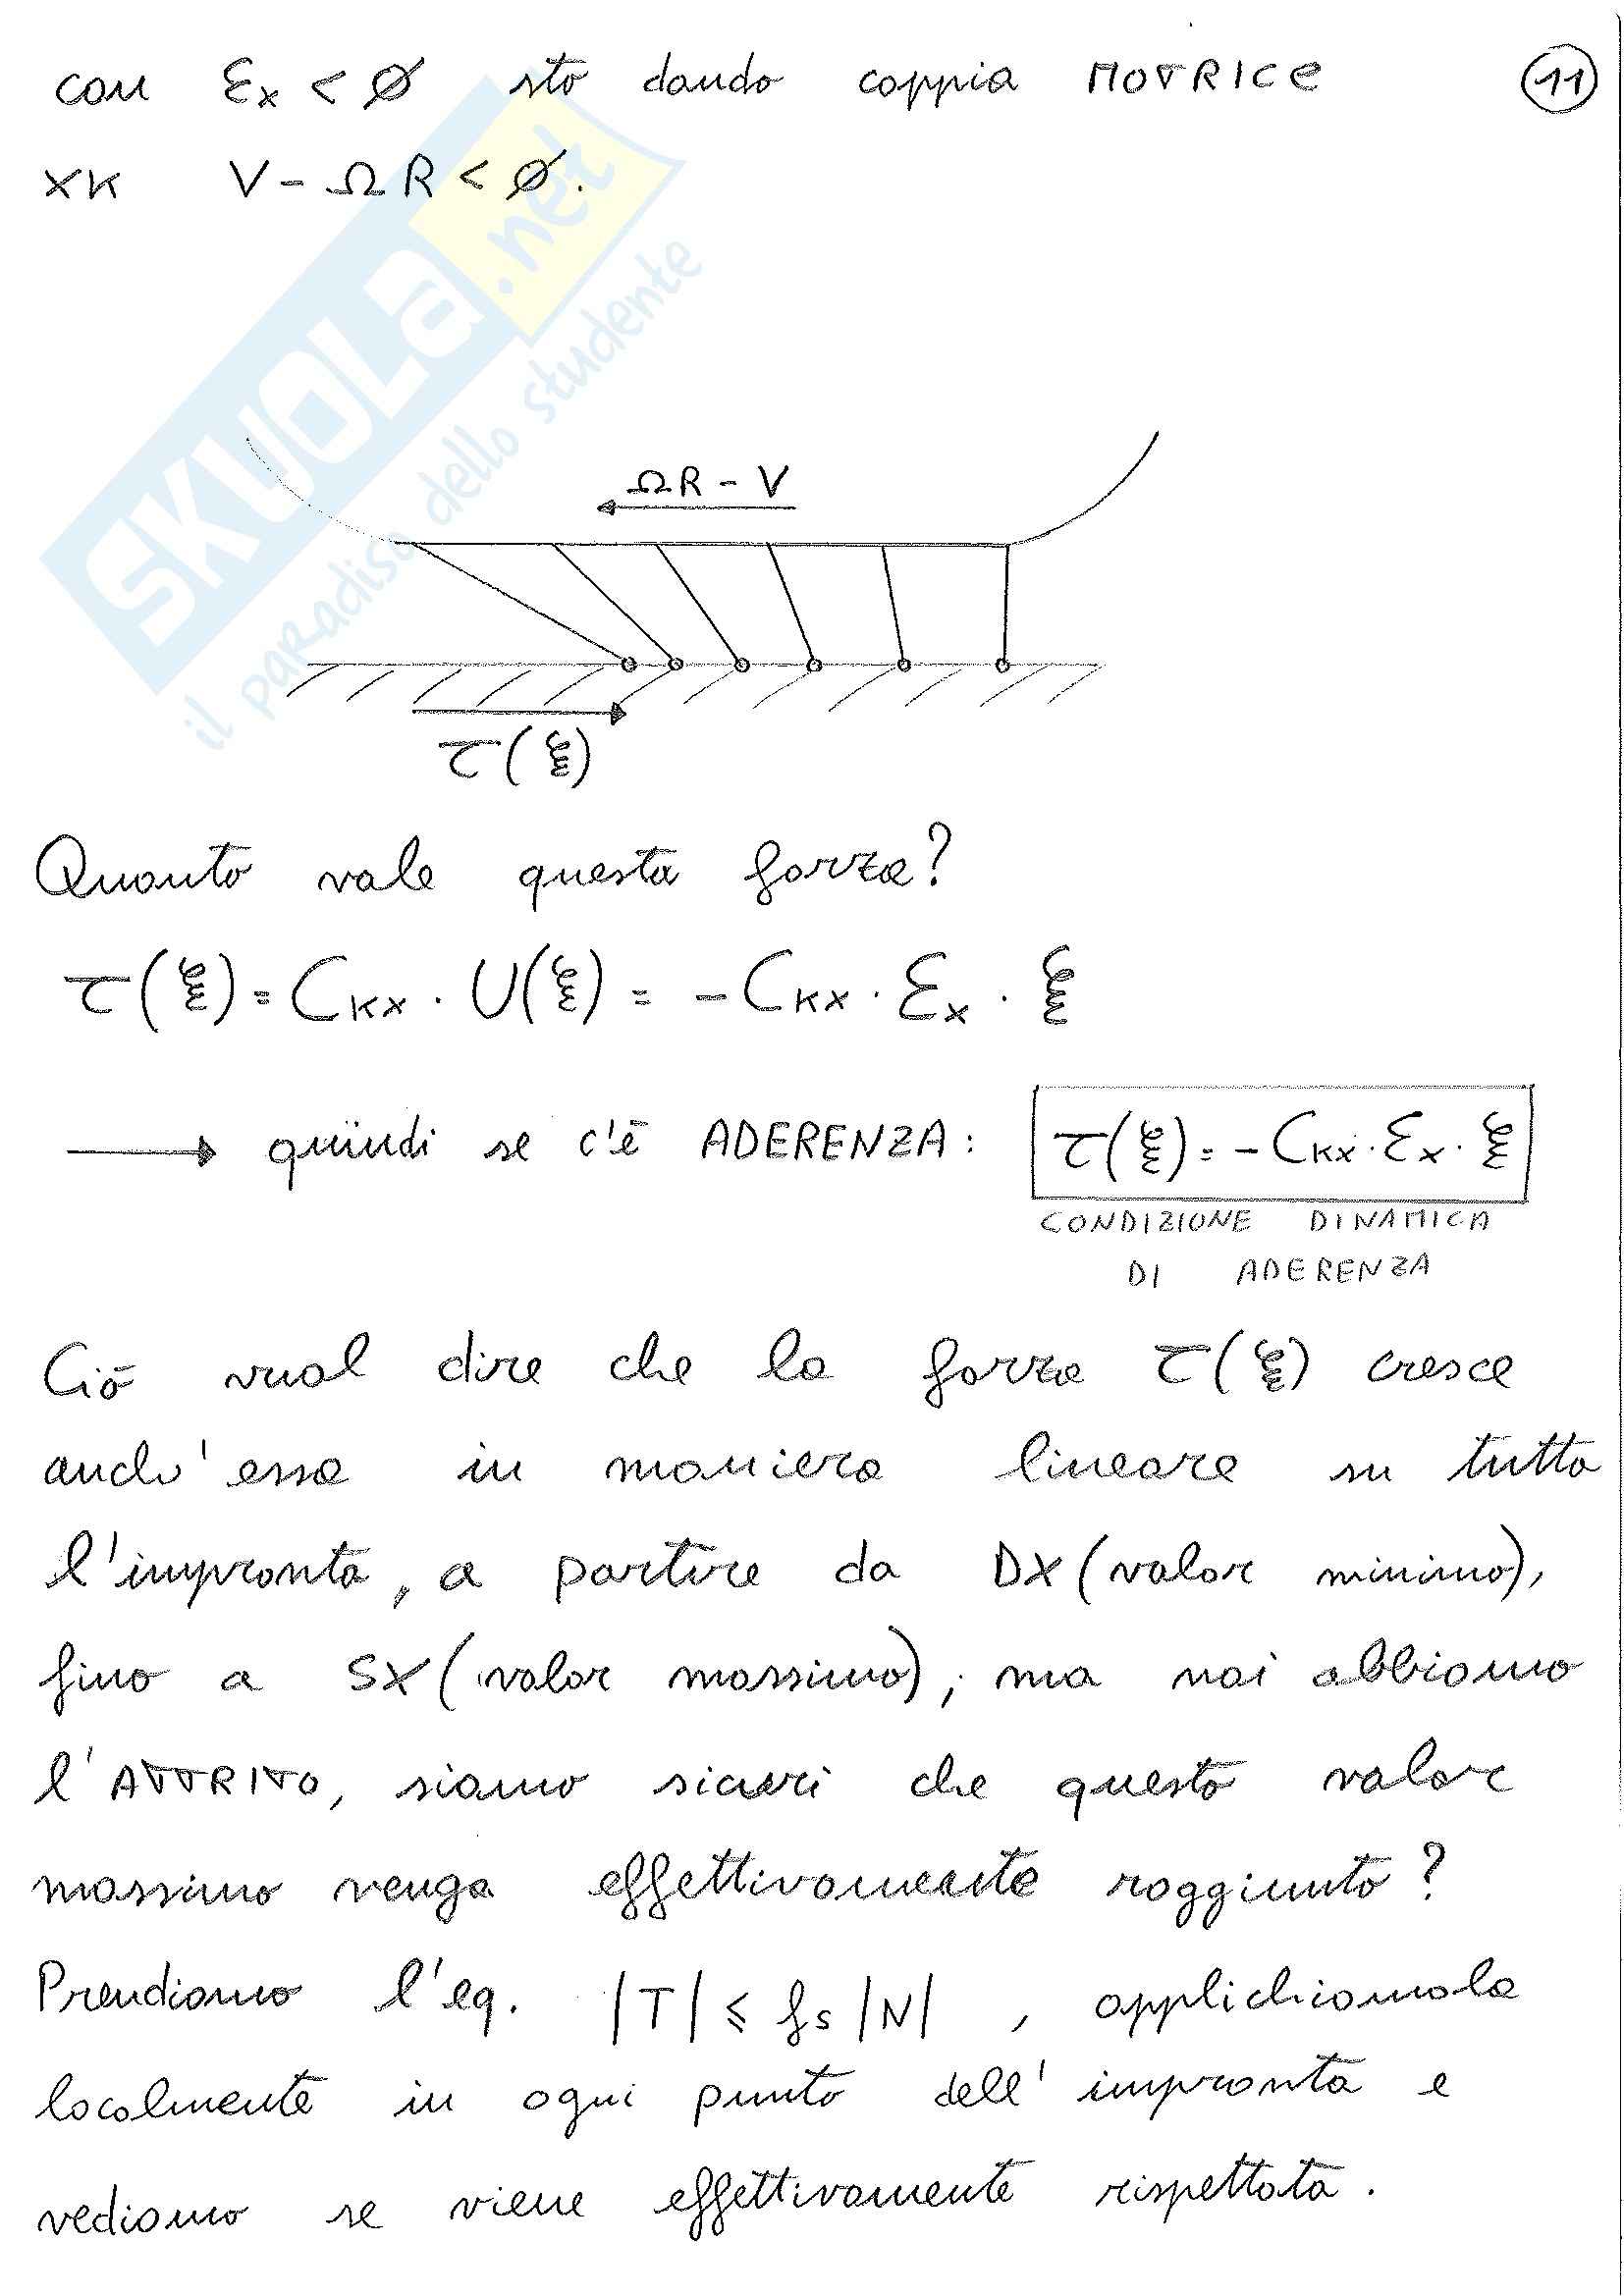 con Ɛx < Ø sto dando coppia MOTRICE 11
XK V - ΩR < Ø.
SKUOLA.net
il paradiso dello studente
ΩR - V
τ(ξ)
Quanto vale questa forza?
τ(ξ) = CKX · U(ξ) = - CKX · Ɛx · ξ
→ quindi se c'è ADERENZA: τ(ξ) = - CKX · Ɛx · ξ
CONDIZIONE DINAMICA
DI ADERENZA
Ciò vuol dire che la forza τ(ξ) cresce
anch'essa in maniera lineare su tutta
l'impronta, a partire da DX (valor minimo),
fino a SX (valor massimo); ma noi abbiamo
l'ATTRITO, siamo sicuri che questo valore
massimo venga effettivamente raggiunto?
Prendiamo l'eq. |T| ≤ fs |N| , applichiamola
localmente in ogni punto dell'impronta e
vediamo se viene effettivamente rispettata.